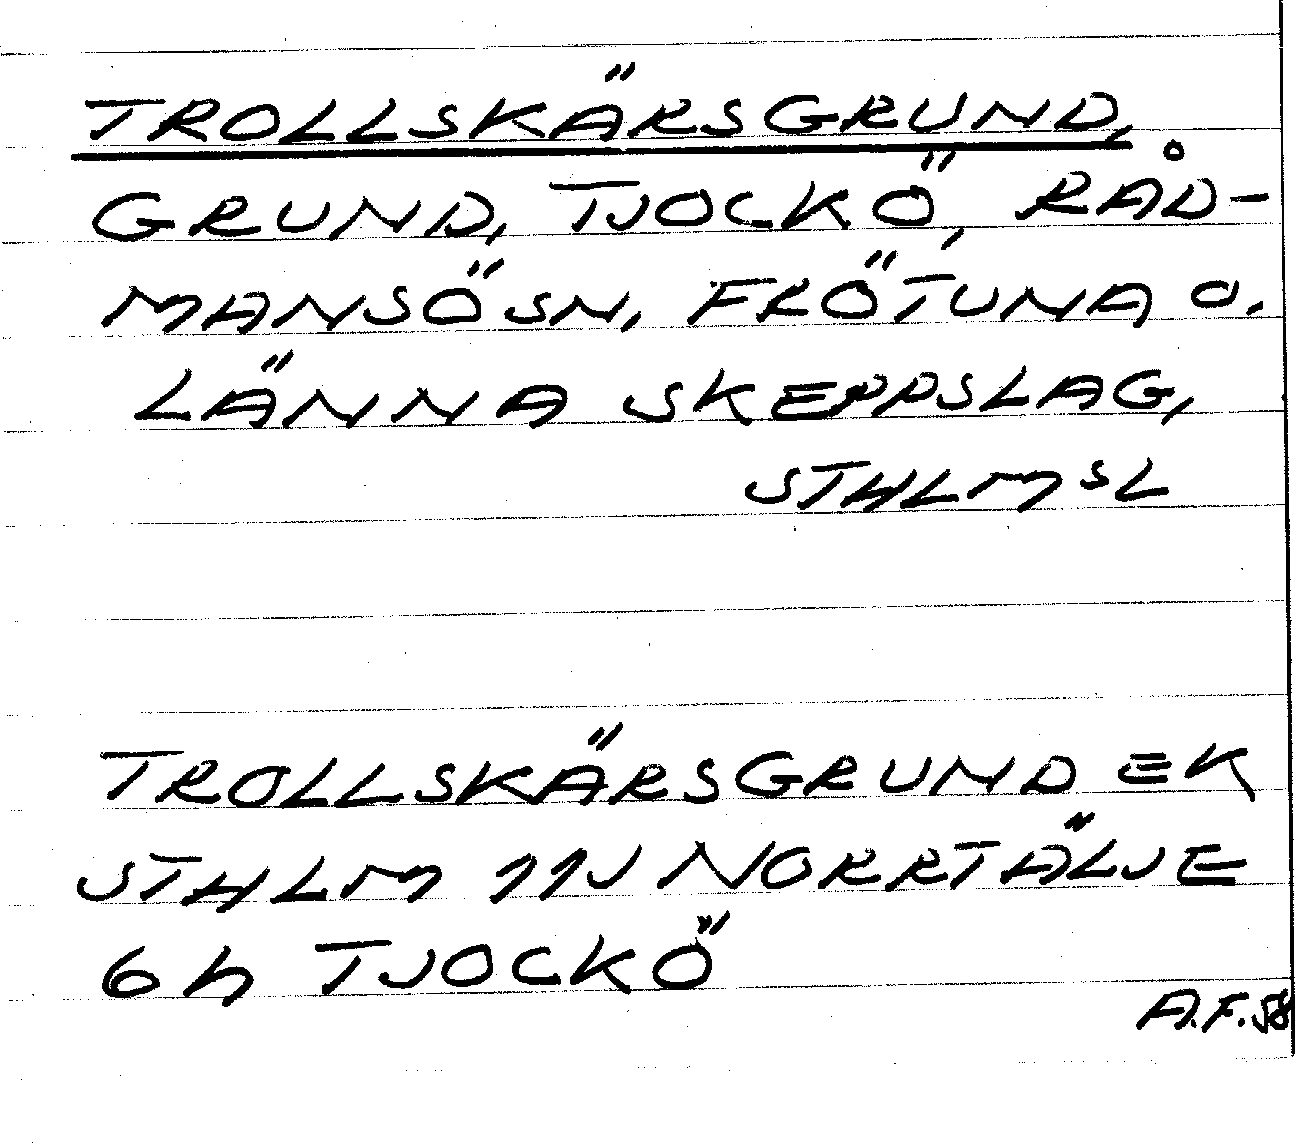 TROLLSKÄRSGRUND,
GRUND, TJOCKÖ, RÅD-
MANSÖ SN, FRÖTUNA O.
LÄNNA SKEPPSLAG,
STHLMS L
TROLLSKÄRSGRUND EK
STHLM 11J NORRTÄLJE
6h TJOCKÖ
A.F. 58